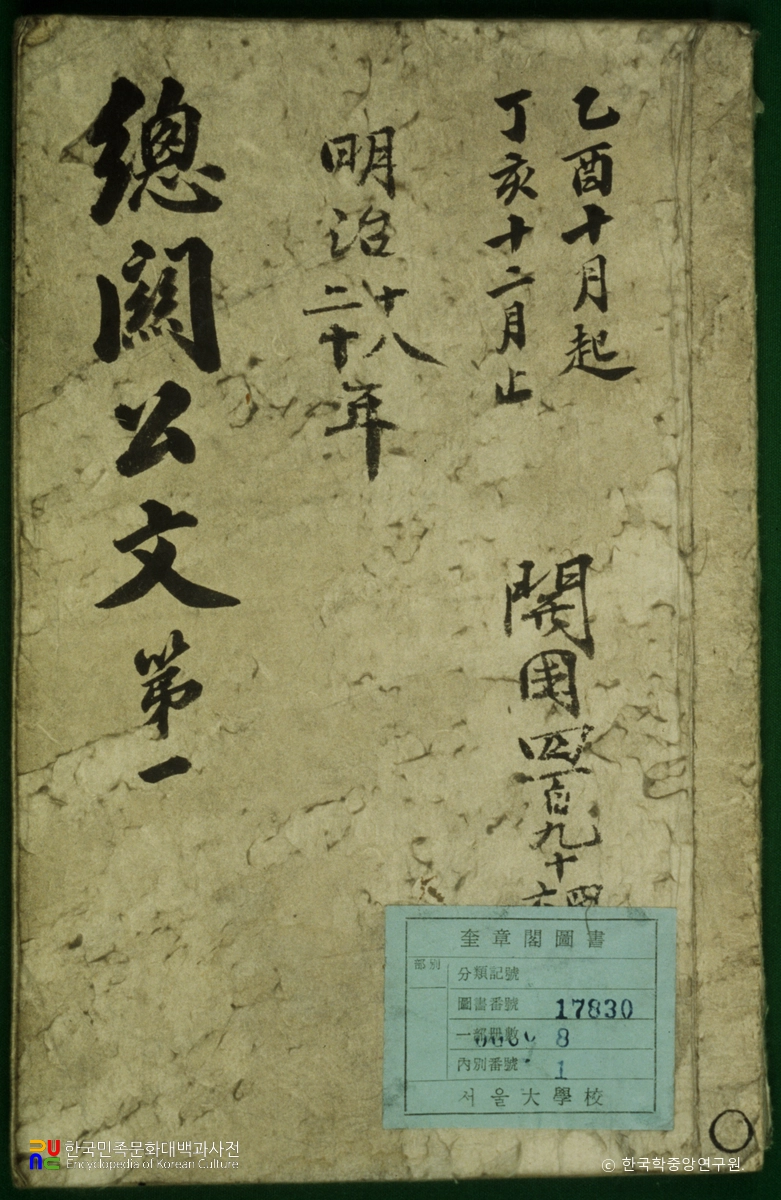 乙酉十月起
丁亥十二月止
開國四百九十四
六
明治十八
二十年
總關公文第一
奎章閣圖書
部別
分類記號
圖書番號 17830
一部冊數 8
內別番號 1
서울大學校
한국민족문화대백과사전
Encyclopedia of Korean Culture
© 한국학중앙연구원